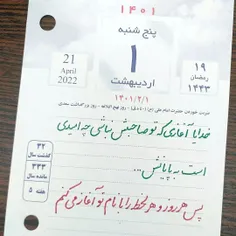 ۱۴۰۱
پنج شنبه
21
April
2022
۱
اردیبهشت
۱۹
رمضان
۱۴۴۳
۱۴۰۱/۲/۱
خدایا آغازی که تو صاحبش باشی چه امیدی
است به پایانش...
پس هر روز و هر لحظه را با نام تو آغاز می کنم
۳۲
گذشت سال
۳۳۳
مانده سال
هفته ۵